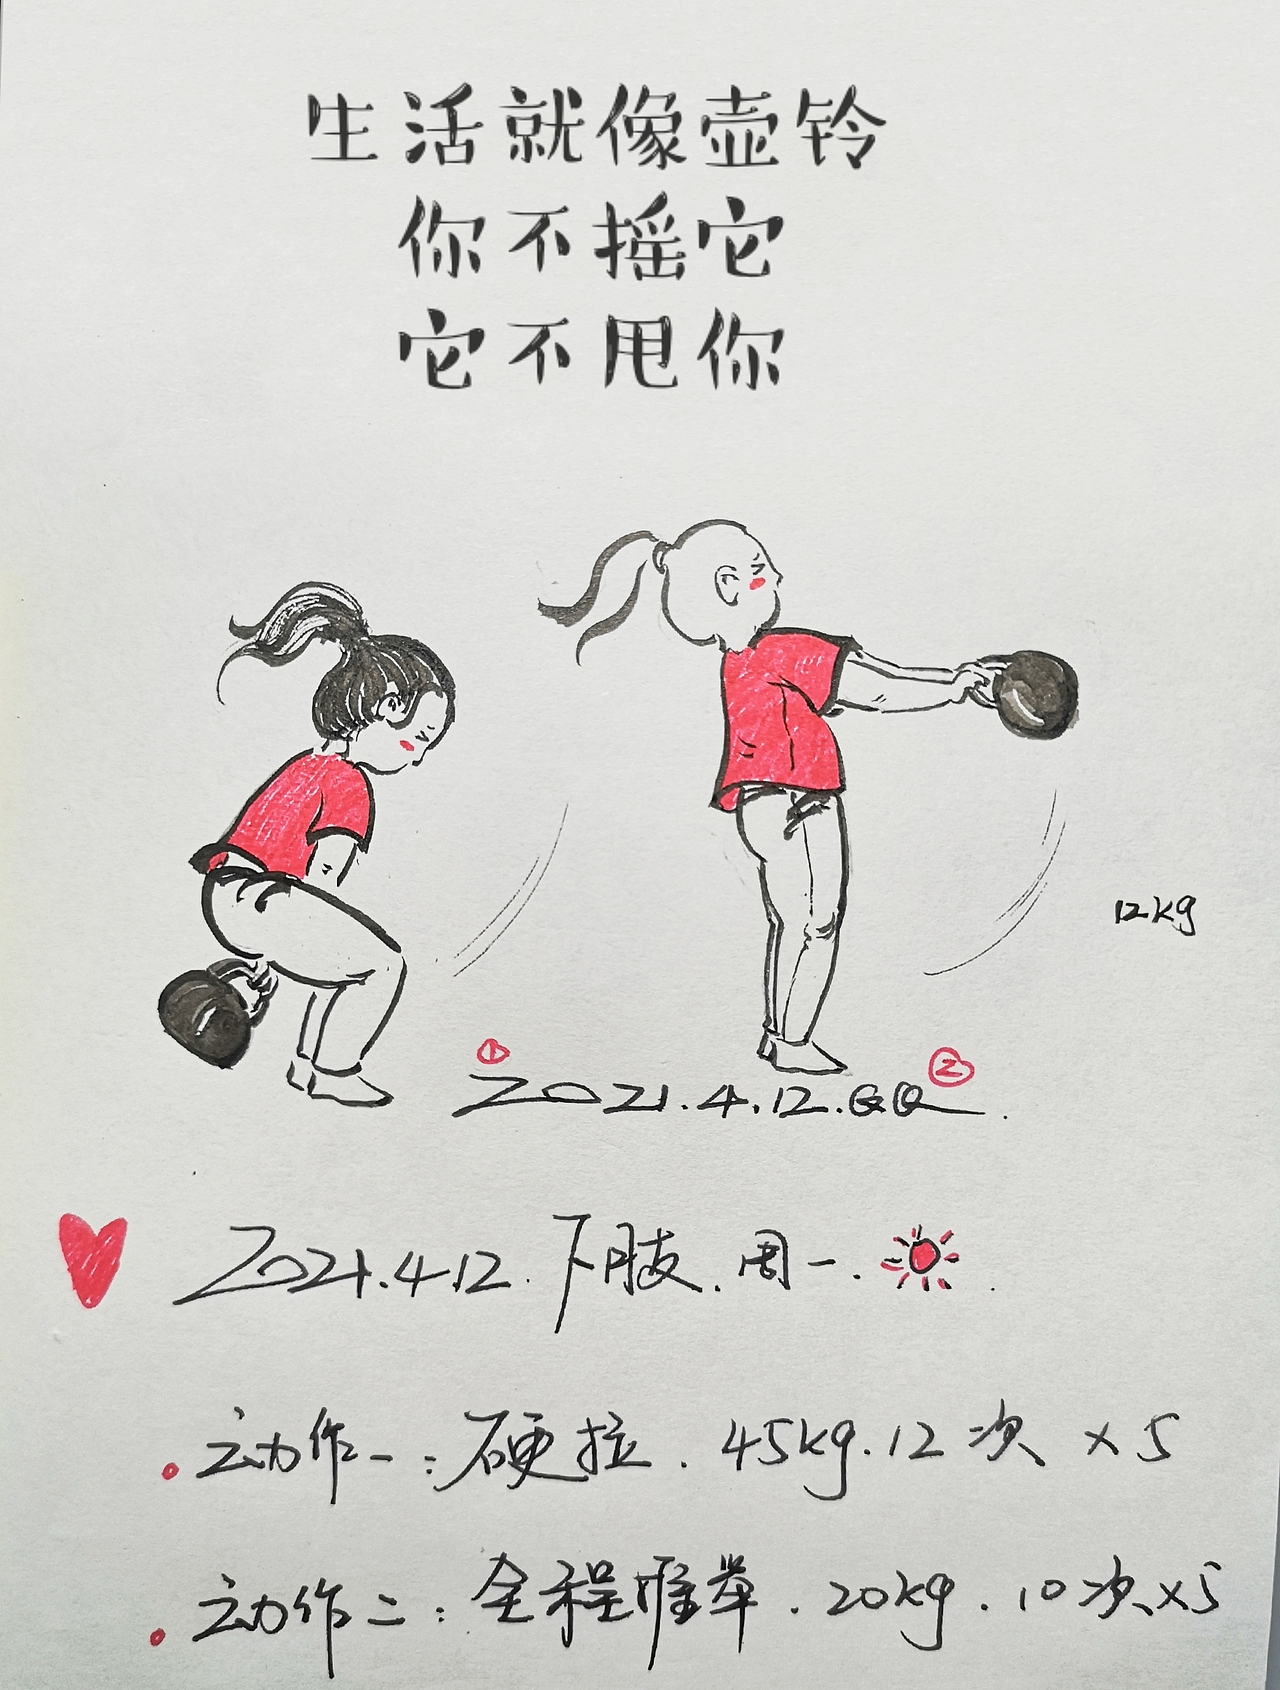 生活就像壶铃
你不摇它
它不甩你
12kg
① ②
2021.4.12.QQ.
2021.4.12.下肢.周一.
动作一:硬拉.45kg.12次×5
动作二:全程推举.20kg.10次×5